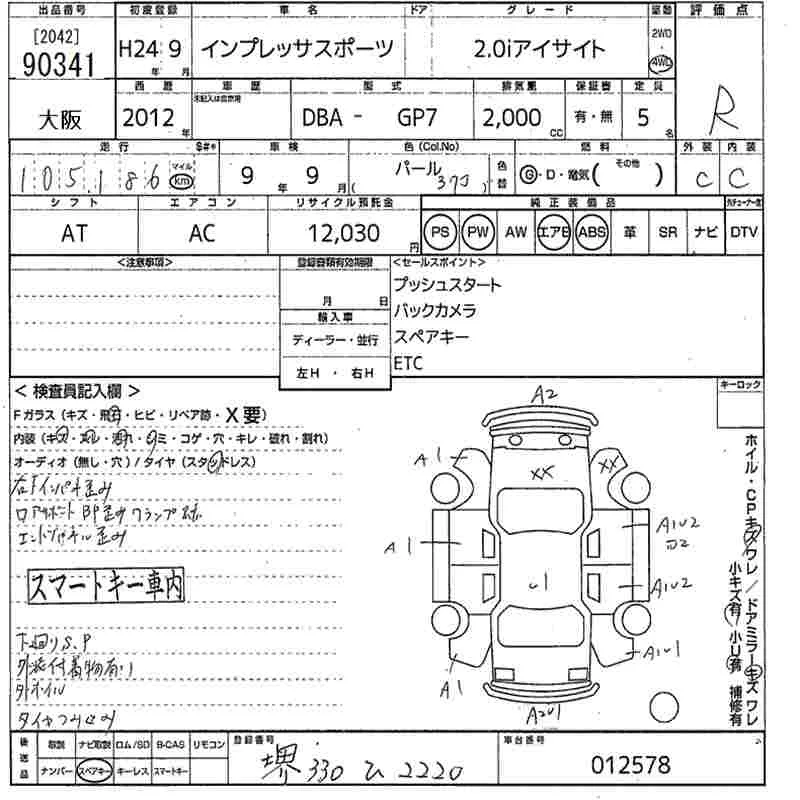 出品番号 初度登録 車名 ドア グレード 駆動 評価点
[2042]
90341
H24 9 インプレッサスポーツ 2.0iアイサイト 2WD 4WD R
年 月
西暦 車歴 型式 排気量 保証書 定員
未記入は自家用
大阪 2012 DBA - GP7 2,000 有・無 5
年 CC 名
走行 $#* 車検 色(Col.No) 燃料 外装 内装
105186 マイル km 9年 9月 パール (37J) 色替 G・D・電気( その他 ) C C
シフト エアコン リサイクル預託金 純正装備品
AT AC 12,030円 PS PW AW エアB ABS 革 SR ナビ DTV
<注意事項> 登録書類有効期限 <セールスポイント>
月 日
プッシュスタート
バックカメラ
スペアキー
ETC
輸入車
ディーラー・並行
左H・右H
< 検査員記入欄 > キーロック
Fガラス (キズ・飛石・ヒビ・リペア跡・X要)
内装 (キズ・スレ・汚れ・シミ・コゲ・穴・キレ・破れ・割れ)
オーディオ (無し・穴) / タイヤ (スタッドレス)
エンドパネル歪み
スマートキー車内
下回りS.P
外装付着物有り
外ホイル
タイヤつみ込み
A2
A1 XX XX
A1 A1U2
U1 A1U2
A1 A1U1
A2U1
ホイル・CPキズワレ/ドアミラーキズワレ
小キズ有 小U有 補修有
後送品 取説 ナビ取説 ロム/SD B-CAS リモコン
ナンバー スペアキー キーレス スマートキー
登録番号 堺 330 ひ 2220
車台番号 012578